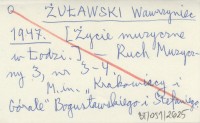 ŻUŁAWSKI Wawrzyniec
1947. [Życie muzyczne
w Łodzi.] — Ruch Muzycz-
ny 3, nr 3-4.
M.in. "Krakowiacy i
Górale" Bogusławskiego i Stefaniego.
/2025